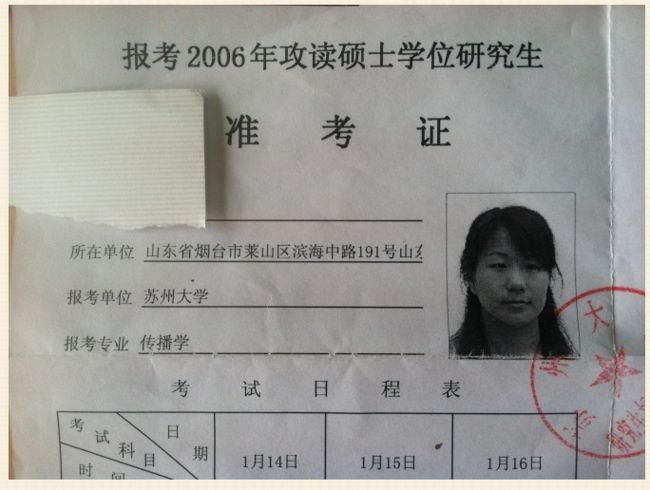 报考2006年攻读硕士学位研究生
准考证
所在单位 山东省烟台市莱山区滨海中路191号山东
报考单位 苏州大学
报考专业 传播学
大
师
考试日程表
考试科目 日期
1月14日 1月15日 1月16日
时间